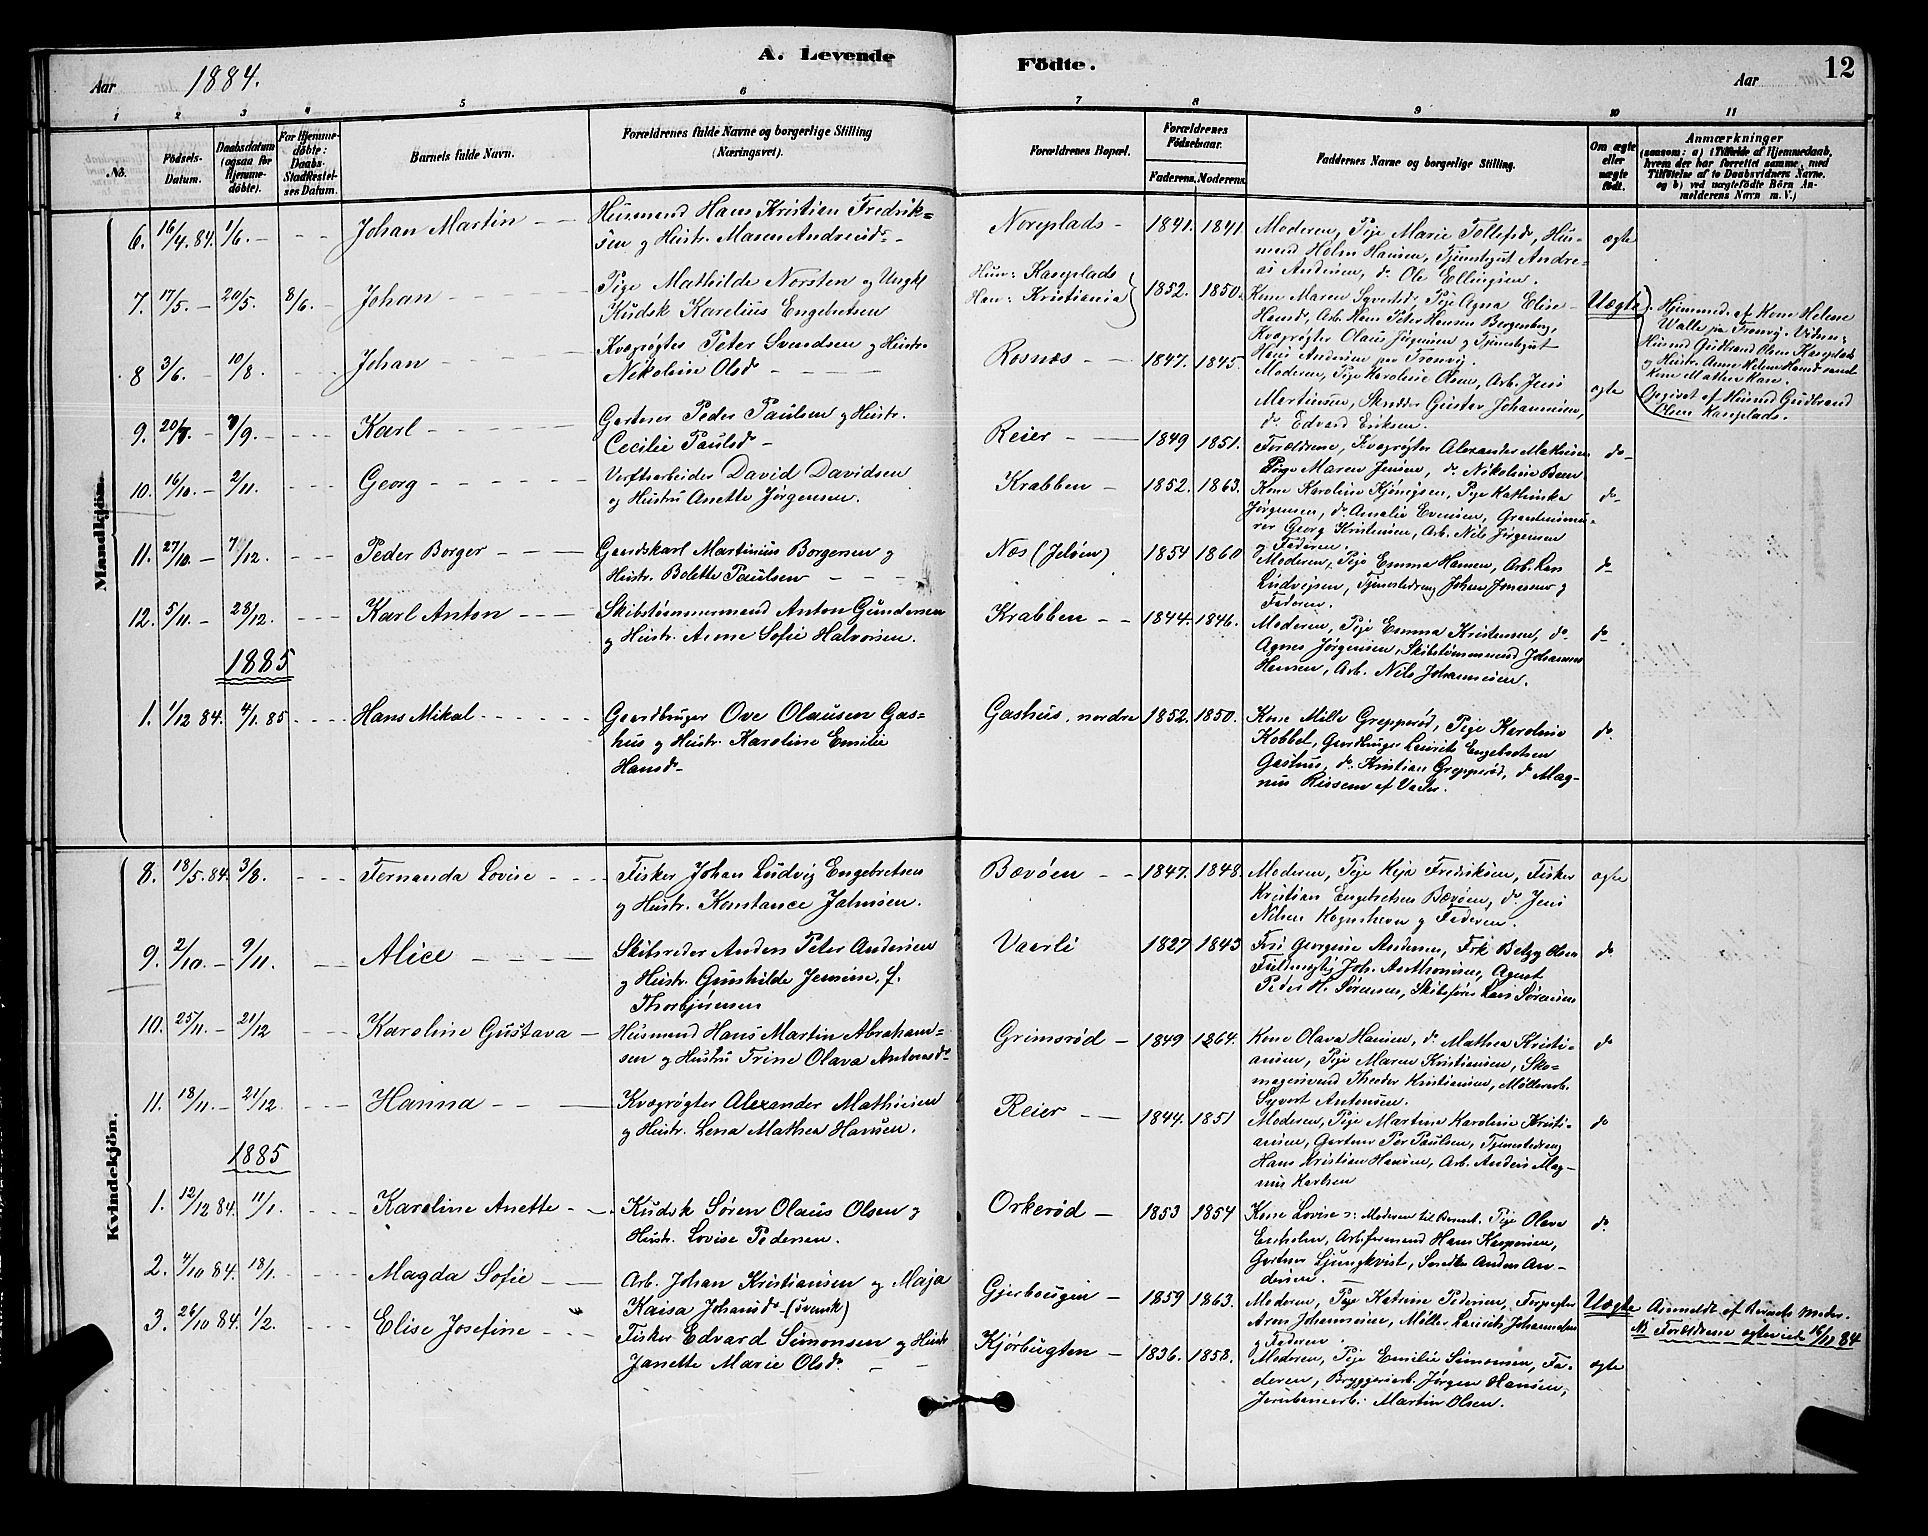 A. Levende Födte. 12
Aar 1884. Aar
1 2 3 4 5 6 7 8 9 10 11
No. Födsels-Datum. Daabsdatum (ogsaa for Hjemmedöbte). For Hjemmedöbte: Daabs-Stadfæstelses Datum. Barnets fulde Navn. Forældrenes fulde Navne og borgerlige Stilling (Næringsvei). Forældrenes Bopæl. Forældrenes Födselsaar. Faderens. Moderens. Faddernes Navne og borgerlige Stilling. Om ægte eller uægte födt. Anmærkninger (saasom: a) i Tilfælde af Hjemmedaab, hvem der har forrettet samme, med Tilföielse af to Daabsvidners Navne, og b) ved uægtefödte Börn Anmelderens Navn m. V.)
Mandkjön.
6. 16/4. 84. 1/6. Johan Martin Husmand Hans Kristian Fredrik-
sen og Hustr. Maren Andreasd. Noreplads 1841. 1841 Moderen, Pige Marie Tollefsd., Hus-
mand Holm Hansen, Tjenestegut Andre-
as Andersen, do Ole Ellingsen. ægte
7. 17/5. 20/5. 8/6. Johan Pige Mathilde Norsten og Ungkl
Kudsk Karelius Engebretsen Hun: Kaseplads
Han: Kristiania 1852. 1850. Kone Maren Syvertsd. Pige Agna Elise
Hansd., Arb. Hans Peter Hansen Bergenberg,
Kvægrøgter Olaus Jørgensen og Tjenestegut
Hans Andersen paa Tronvig. Uægte Hjemmed. af Kone Helene
Walle paa Tronvig. Vidner:
Husmd Gudbrand Olsen Kaseplads
og Hustr. Anne Helene Hansd. samt
Kone Mathea Kase.
Opgivet af Husmd Gudbrand
Olsen Kaseplads.
8 3/6. 10/8. Johan Kvægrøgter Peter Svendsen og Hustr.
Nikoline Olsd. Rosnæs 1847. 1845. Moderen, Pige Karoline Olsen, Arb. Jens
Martinsen, Skrædder Gustav Johannesen,
do Edvard Eriksen. ægte
9. 20/7. 7/9. Karl Gartner Peder Paulsen og Hustr.
Cecilie Paulsd. Reier 1849 1851. Forældrene, Kvægrøgter Alexander Mathisen
Pige Maren Jensen, do Nikoline Beer do
10. 16/10. 2/11. Georg Verftsarbeider David Davidsen
og Hustru Anette Jørgensen. Krabben 1852. 1863. Kone Karoline Kjønigsen, Pige Kathinka
Jørgensen, do Amalie Evensen, Grandemu-
rer Georg Kristensen, Arb. Nils Jørgensen
og Faderen. do
11. 27/10. 7/12. Peder Borger Gaardskarl Martinius Borgersen og
Hustr. Bolette Paulsen Næs (Jeløen) 1854 1860 Moderen, Pige Emma Hansen, Arb. Lars
Ludvigsen, Tjenestedreng Johan Jonassen og
Faderen. do
12. 5/11. 28/12. Karl Anton Skibstømmermand Anton Gundersen
og Hustr. Anne Sofie Halvorsen. Krabben 1844. 1846. Moderen, Pige Emma Kristensen, do
Agnes Jørgensen, Skibstømmermand Johannes
Hansen, Arb. Nils Johannesen. do
1885
1. 1/12 84. 4/1. 85 Hans Mikal Gaardbruger Ove Olausen Gas-
hus og Hustr. Karoline Emilie
Hansd. Gashus, nordre 1852. 1850. Kone Mille Grepperød, Pige Karoline
Kobbel, Gaardbruger Laurits Engebretsen
Gashus, do Kristian Grepperød, do Mag-
nus Rissem af Vaaler. do
Kvindekjön.
8. 18/5. 84. 3/8. Fernanda Lovise Fisker Johan Ludvig Engebretsen
og Hustr. Konstance Jahnsen. Bævøen 1847. 1848. Moderen, Pige Kaja Fredriksen, Fisker
Kristian Engebretsen Bævøen, do Jens
Nilsen Kagnshavn og Faderen. ægte
9. 2/10. 9/11. Alice Skibsreder Anders Peter Andersen
og Hustr. Gunhilde Jensine, f.
Thorbjørnsen Vaarli 1827 1843 Fru Georgine Andersen, Frk Betzy Olsen
Fuldmægtig Joh. Anthonisen, Agent
Peder H. Sørensen, Skibsfører Lars Sørensen do
10. 25/11. 21/12 Karoline Gustava Husmand Hans Martin Abraham-
sen og Hustru Trine Olava Antonsd. Grimsrød 1849 1864. Kone Olava Hansen, do Mathea Kristi-
ansen, Pige Maren Kristiansen, Sko-
magersvend Theodor Kristiansen, Møllerarb.
Syvert Antonsen. do
11. 18/11. 21/12. Hanna Kvægrøgter Alexander Mathisen
og Hustr. Lena Mathea Hansen. Reier 1844. 1851 Moderen, Pige Martine Karoline Kristi-
ansen, Gartner Per Paulsen, Tjenestedreng
Hans Kristian Hansen, Arb. Anders Mag-
nus Karlsen do
1885
1. 12/12 84. 11/1. Karoline Anette Kudsk Søren Olaus Olsen og
Hustr. Lovise Pedersen. Orkerød 1853 1854 Kone Lovise ɔ: Moderen til Barnet. Pige Olava
Enholm, Arb.formand Hans Kaspersen,
Gartner Ljungkvist, Smed Anders An-
dersen. do
2. 4/10 84. 18/1. Magda Sofie Arb. Johan Kristiansen og Maja
Kaisa Johansd. (svensk) Gjerbougen 1859 1863. Moderen, Pige Katrine Pedersen, Forpagter
Aron Johannesen, Møller Lauritz Johannesen
og Faderen. Uægte Anmeldt af Barnets Moder.
NB Forældrene ægteviede 16/11 84
3. 26/10 84. 1/2. Elise Josefine Fisker Edvard Simonsen og Hustr
Janette Marie Olsd. Kjørbugten 1836. 1858. Moderen, Pige Emilie Simonsen, Fa-
deren, Bryggeriarb. Jørgen Hansen,
Jernbanearb. Martin Olsen. ægte